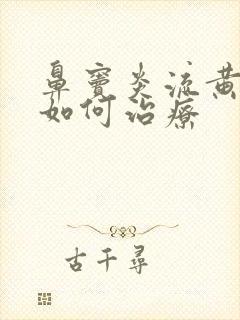 鼻窦炎流黄
如何治疗
古千寻